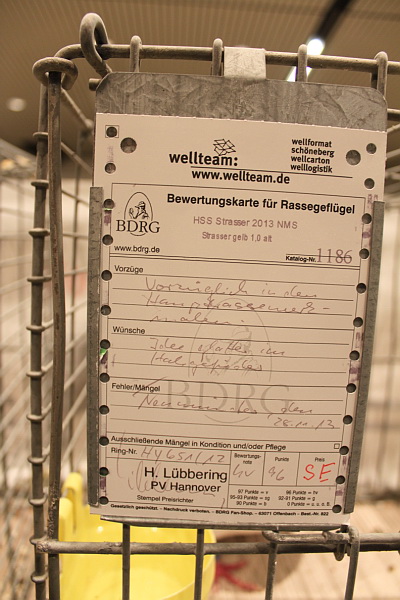 wellteam:
wellformat
schöneberg
wellcarton
welllogistik
www.wellteam.de
BDRG
Bewertungskarte für Rassegeflügel
HSS Strasser 2013 NMS
Strasser gelb 1,0 alt
www.bdrg.de
Katalog-Nr. 1186
Vorzüge
Vorzüglich in den
Hauptrassemerk-
malen
Wünsche
Idee glatter im
Halsgefieder
Fehler/Mängel
BDRG
Neumünster den
28.11.13
Ausschließende Mängel in Kondition und/oder Pflege
Ring-Nr.
H. Lübbering
PV Hannover
Stempel Preisrichter
Bewertungs-
note
Punkte
Preis
96
SE
97 Punkte = v
96 Punkte = hv
95-93 Punkte = sg
92-91 Punkte = g
90 Punkte = b
0 Punkte = o. u.
Gesetzlich geschützt. - Nachdruck verboten. - BDRG Fan-Shop. - 63071 Offenbach - Best.-Nr. 802